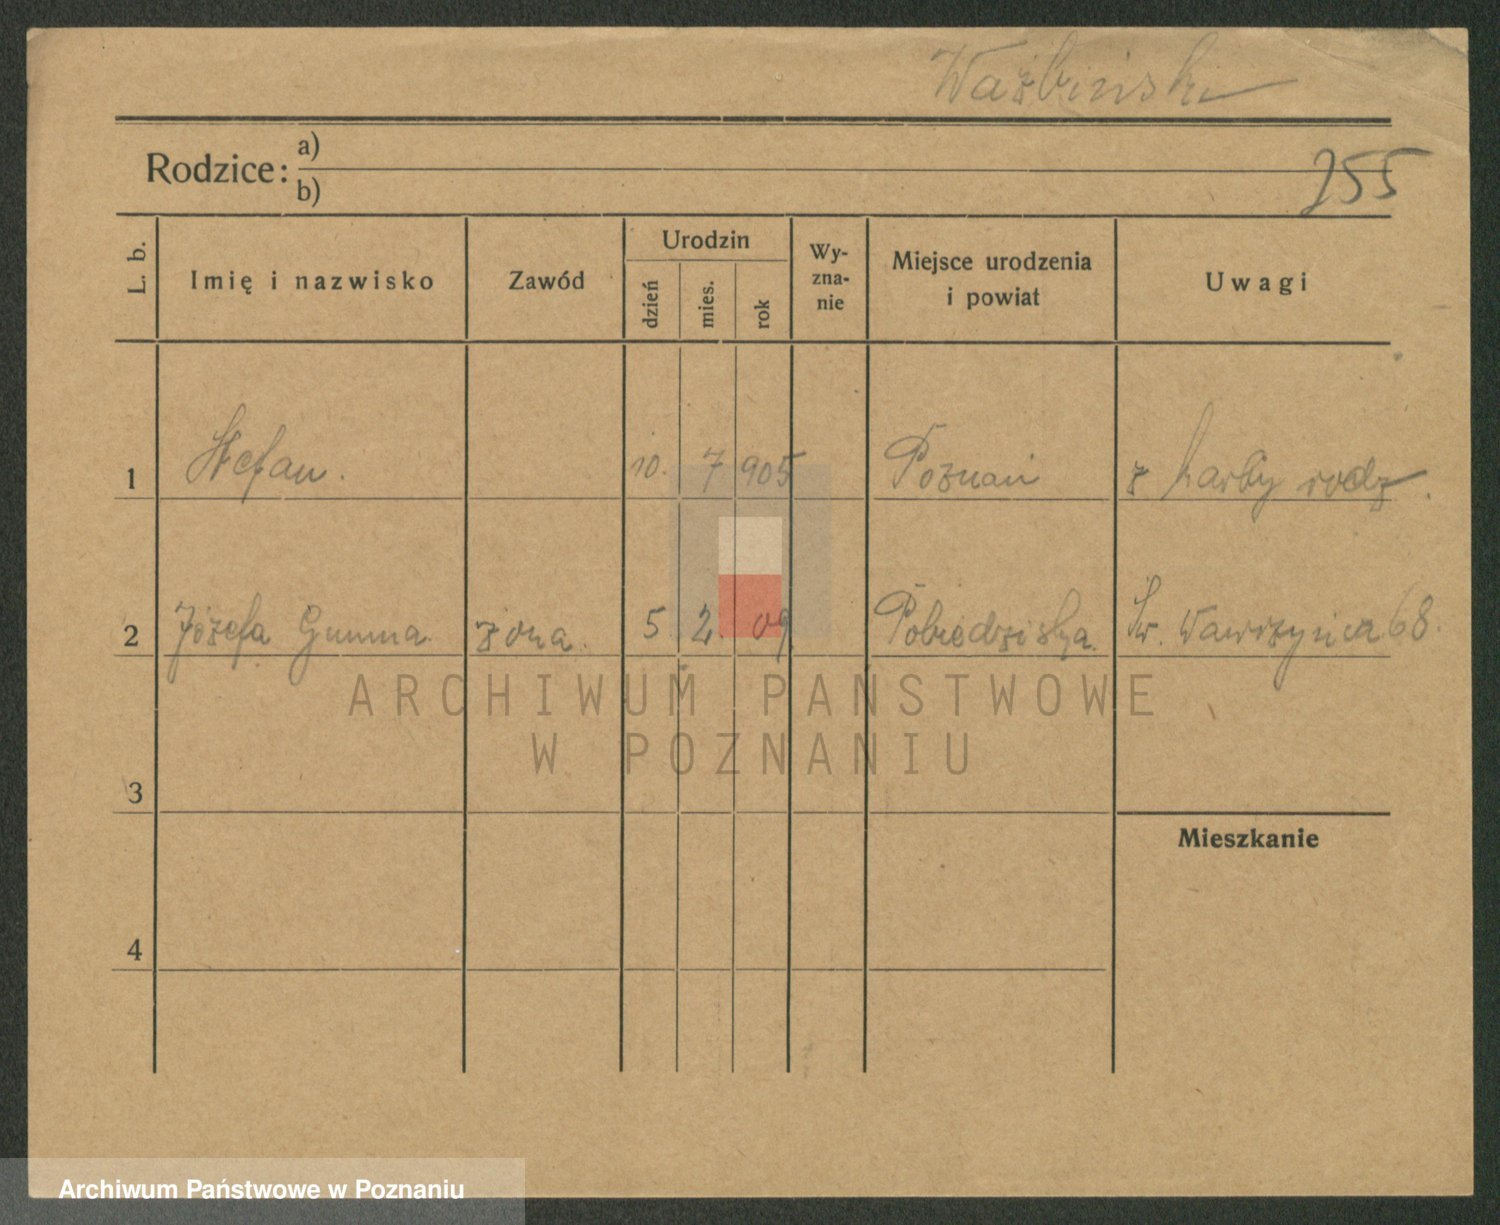 Ważbiński
Rodzice: a)
b)
255
L. b.
Imię i nazwisko
Zawód
Urodzin
dzień
mies.
rok
Wy-
zna-
nie
Miejsce urodzenia
i powiat
Uwagi
1 Stefan. 10. 7 905 Poznań z karty rodz.
2 Józefa Gumna. żona. 5 2. 09. Pobiedziska. Św. Wawrzyńca 68.
ARCHIWUM PAŃSTWOWE
W POZNANIU
3
Mieszkanie
4
Archiwum Państwowe w Poznaniu